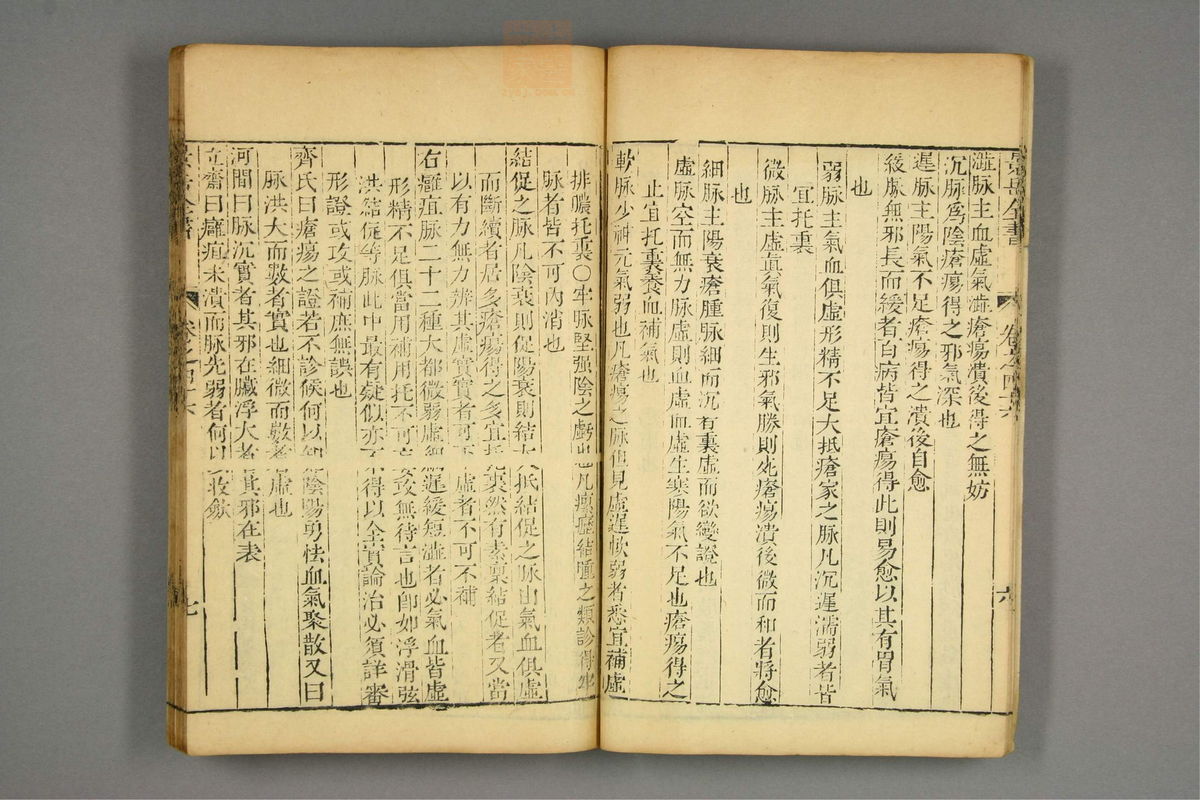 景岳全書 卷之四十六 六
濇脉主血虛氣濇瘡瘍潰後得之無妨
沉脉爲陰瘡瘍得之邪氣深也
遲脉主陽氣不足瘡瘍得之潰後自愈
緩脉無邪長而緩者百病皆宜瘡瘍得此則易愈以其有胃氣
也
弱脉主氣血俱虛形精不足大抵瘡家之脉凡沉遲濡弱者皆
宜托裏
微脉主虛眞氣復則生邪氣勝則死瘡瘍潰後微而和者將愈
也
細脉主陽衰瘡腫脉細而沉有裏虛而欲變證也
虛脉空而無力脉虛則血虛血虛生寒陽氣不足也瘡瘍得之
止宜托裏養血補氣也
軟脉少神元氣弱也凡瘡瘍之脉但見虛遲軟弱者悉宜補虛
排膿托裏〇牢脉堅强陰之虧也凡瘰癧結腫之類診得牢
脉者皆不可內消也
結促之脉凡陰衰則促陽衰則結大抵結促之脉由氣血俱虛
而斷續者居多瘡瘍得之多宜托裏然有素稟結促者又當
以有力無力辨其虛實實者可下虛者不可不補
右癰疽脉二十二種大都微弱虛細遲緩短濇者必氣血皆虛
形精不足俱當用補用托不可妄攻無待言也卽如浮滑弦
洪結促等脉此中最有疑似亦不得以全實論治必須詳審
形證或攻或補庶無誤也
齊氏曰瘡瘍之證若不診候何以知陰陽勇怯血氣聚散又曰
脉洪大而數者實也細微而數者虛也
河間曰脉沉實者其邪在臟浮大者其邪在表
立齋曰癰疽未潰而脉先弱者何以收斂
卷之四十六 七